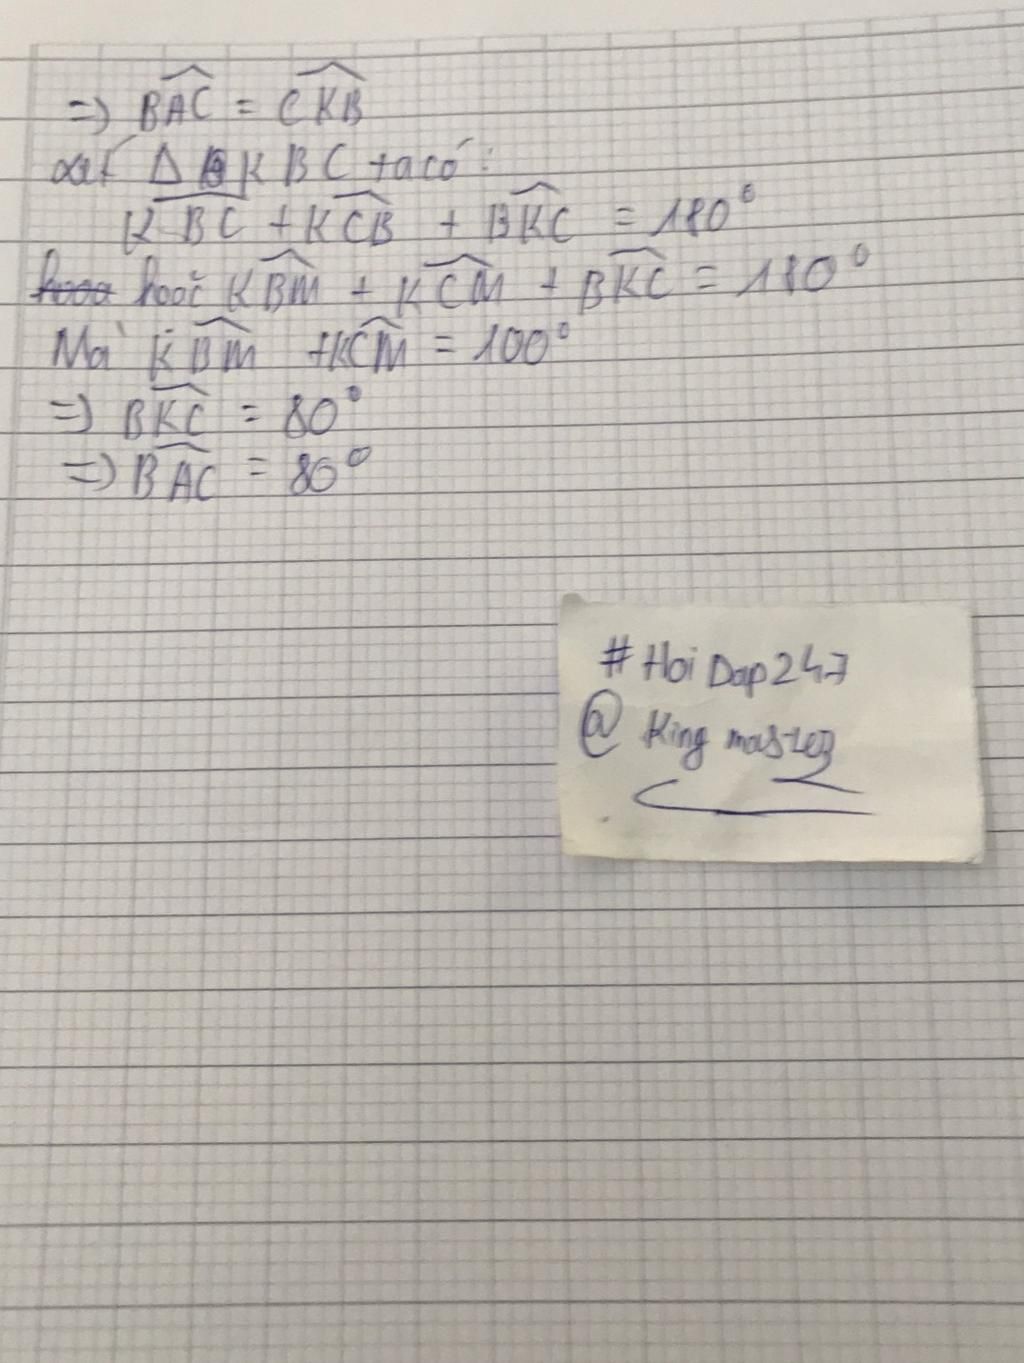 =) BAC = CKB
xét Δ KBC ta có:
KBC + KCB + BKC = 180°
hoặc KBM + KCM + BKC = 180°
Mà KBM + KCM = 100°
=) BKC = 80°
=) BAC = 80°
# Hoi Dap247
@ King master